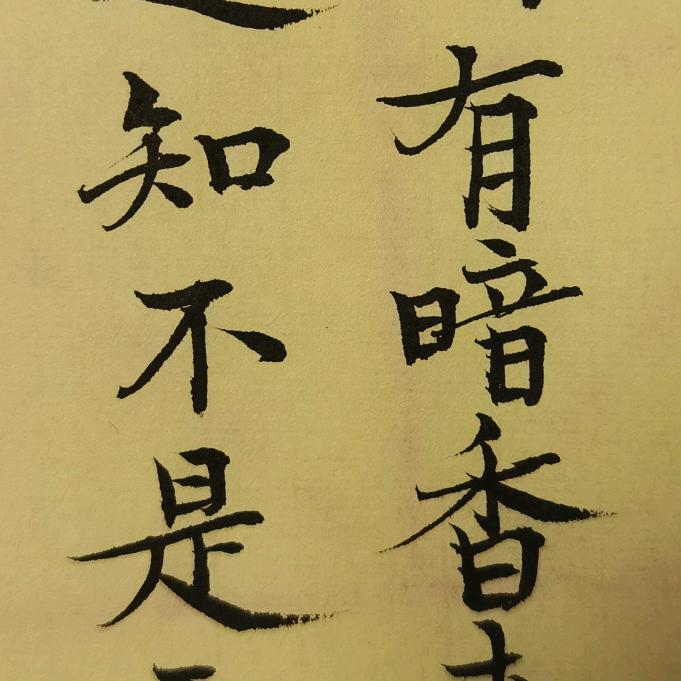 有暗香
知不是